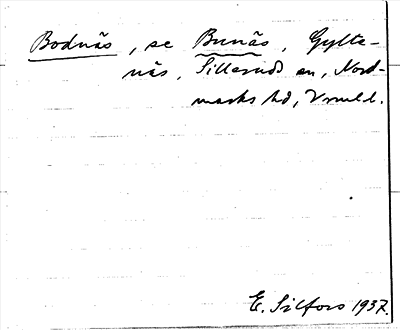 Bodnäs, se Bunäs, Gylte-
näs, Silleruds sn, Nord-
marks hd, Vrmld.
E. Silfors 1937.